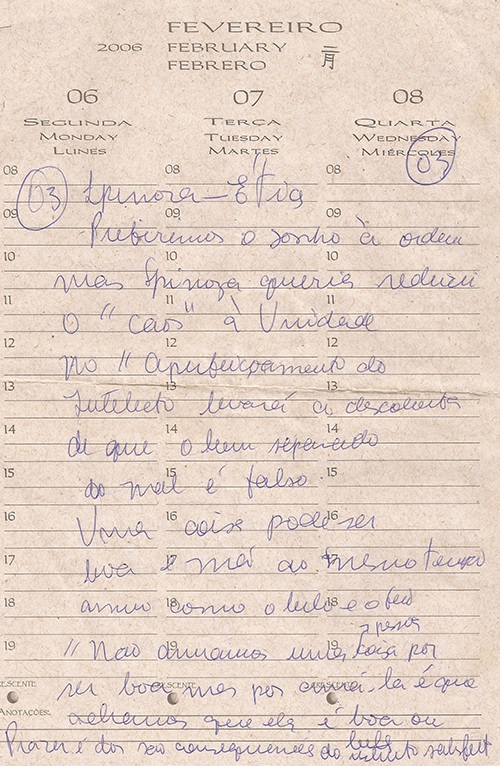 FEVEREIRO
2006 FEBRUARY 二月
FEBRERO
06 07 08
SEGUNDA TERÇA QUARTA
MONDAY TUESDAY WEDNESDAY
LUNES MARTES MIÉRCOLES
03
08 08 08
03 Spinoza – Ética
09
Preferimos o sonho à ordem
10 10 10
mas Spinoza queria reduzir
11 11 11
O "caos" à Unidade
12 12 12
No "Aperfeiçoamento do
13 13 13
Intelecto levará a descoberta
14 14 14
de que o bem separado
15 15 15
do mal é falso.
16 16 16
Uma coisa pode ser
17 17
boa e má ao mesmo tempo
18 18 18
assim como o belo e o feio
a pessoa
19 19 19
"Não amamos uma coisa por
CRESCENTE CRESCENTE
ser boa mas por amá-la é que
ANOTAÇÕES:
achamos que ela é boa ou
bela
Prazer é dor são consequências do instinto satisfeit